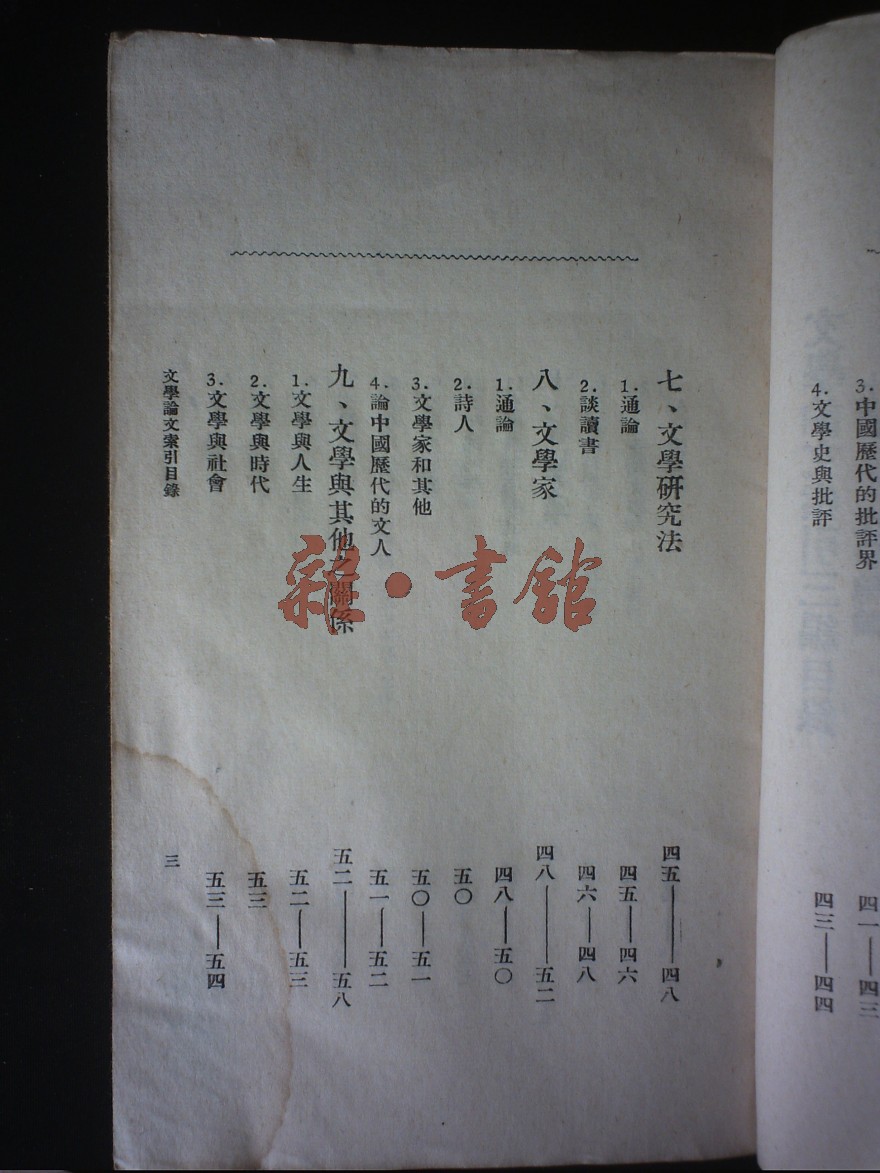 3.中國歷代的批評界 四一——四三
4.文學史與批評 四三——四四
七、文學研究法 四五——四八
1.通論 四五——四六
2.談讀書 四六——四八
八、文學家 四八——五二
1.通論 四八——五〇
2.詩人 五〇
3.文學家和其他 五〇——五一
4.論中國歷代的文人 五一——五二
九、文學與其他之關係 五二——五八
1.文學與人生 五二——五三
2.文學與時代 五三
3.文學與社會 五三——五四
文學論文索引目錄 三
雜·書館